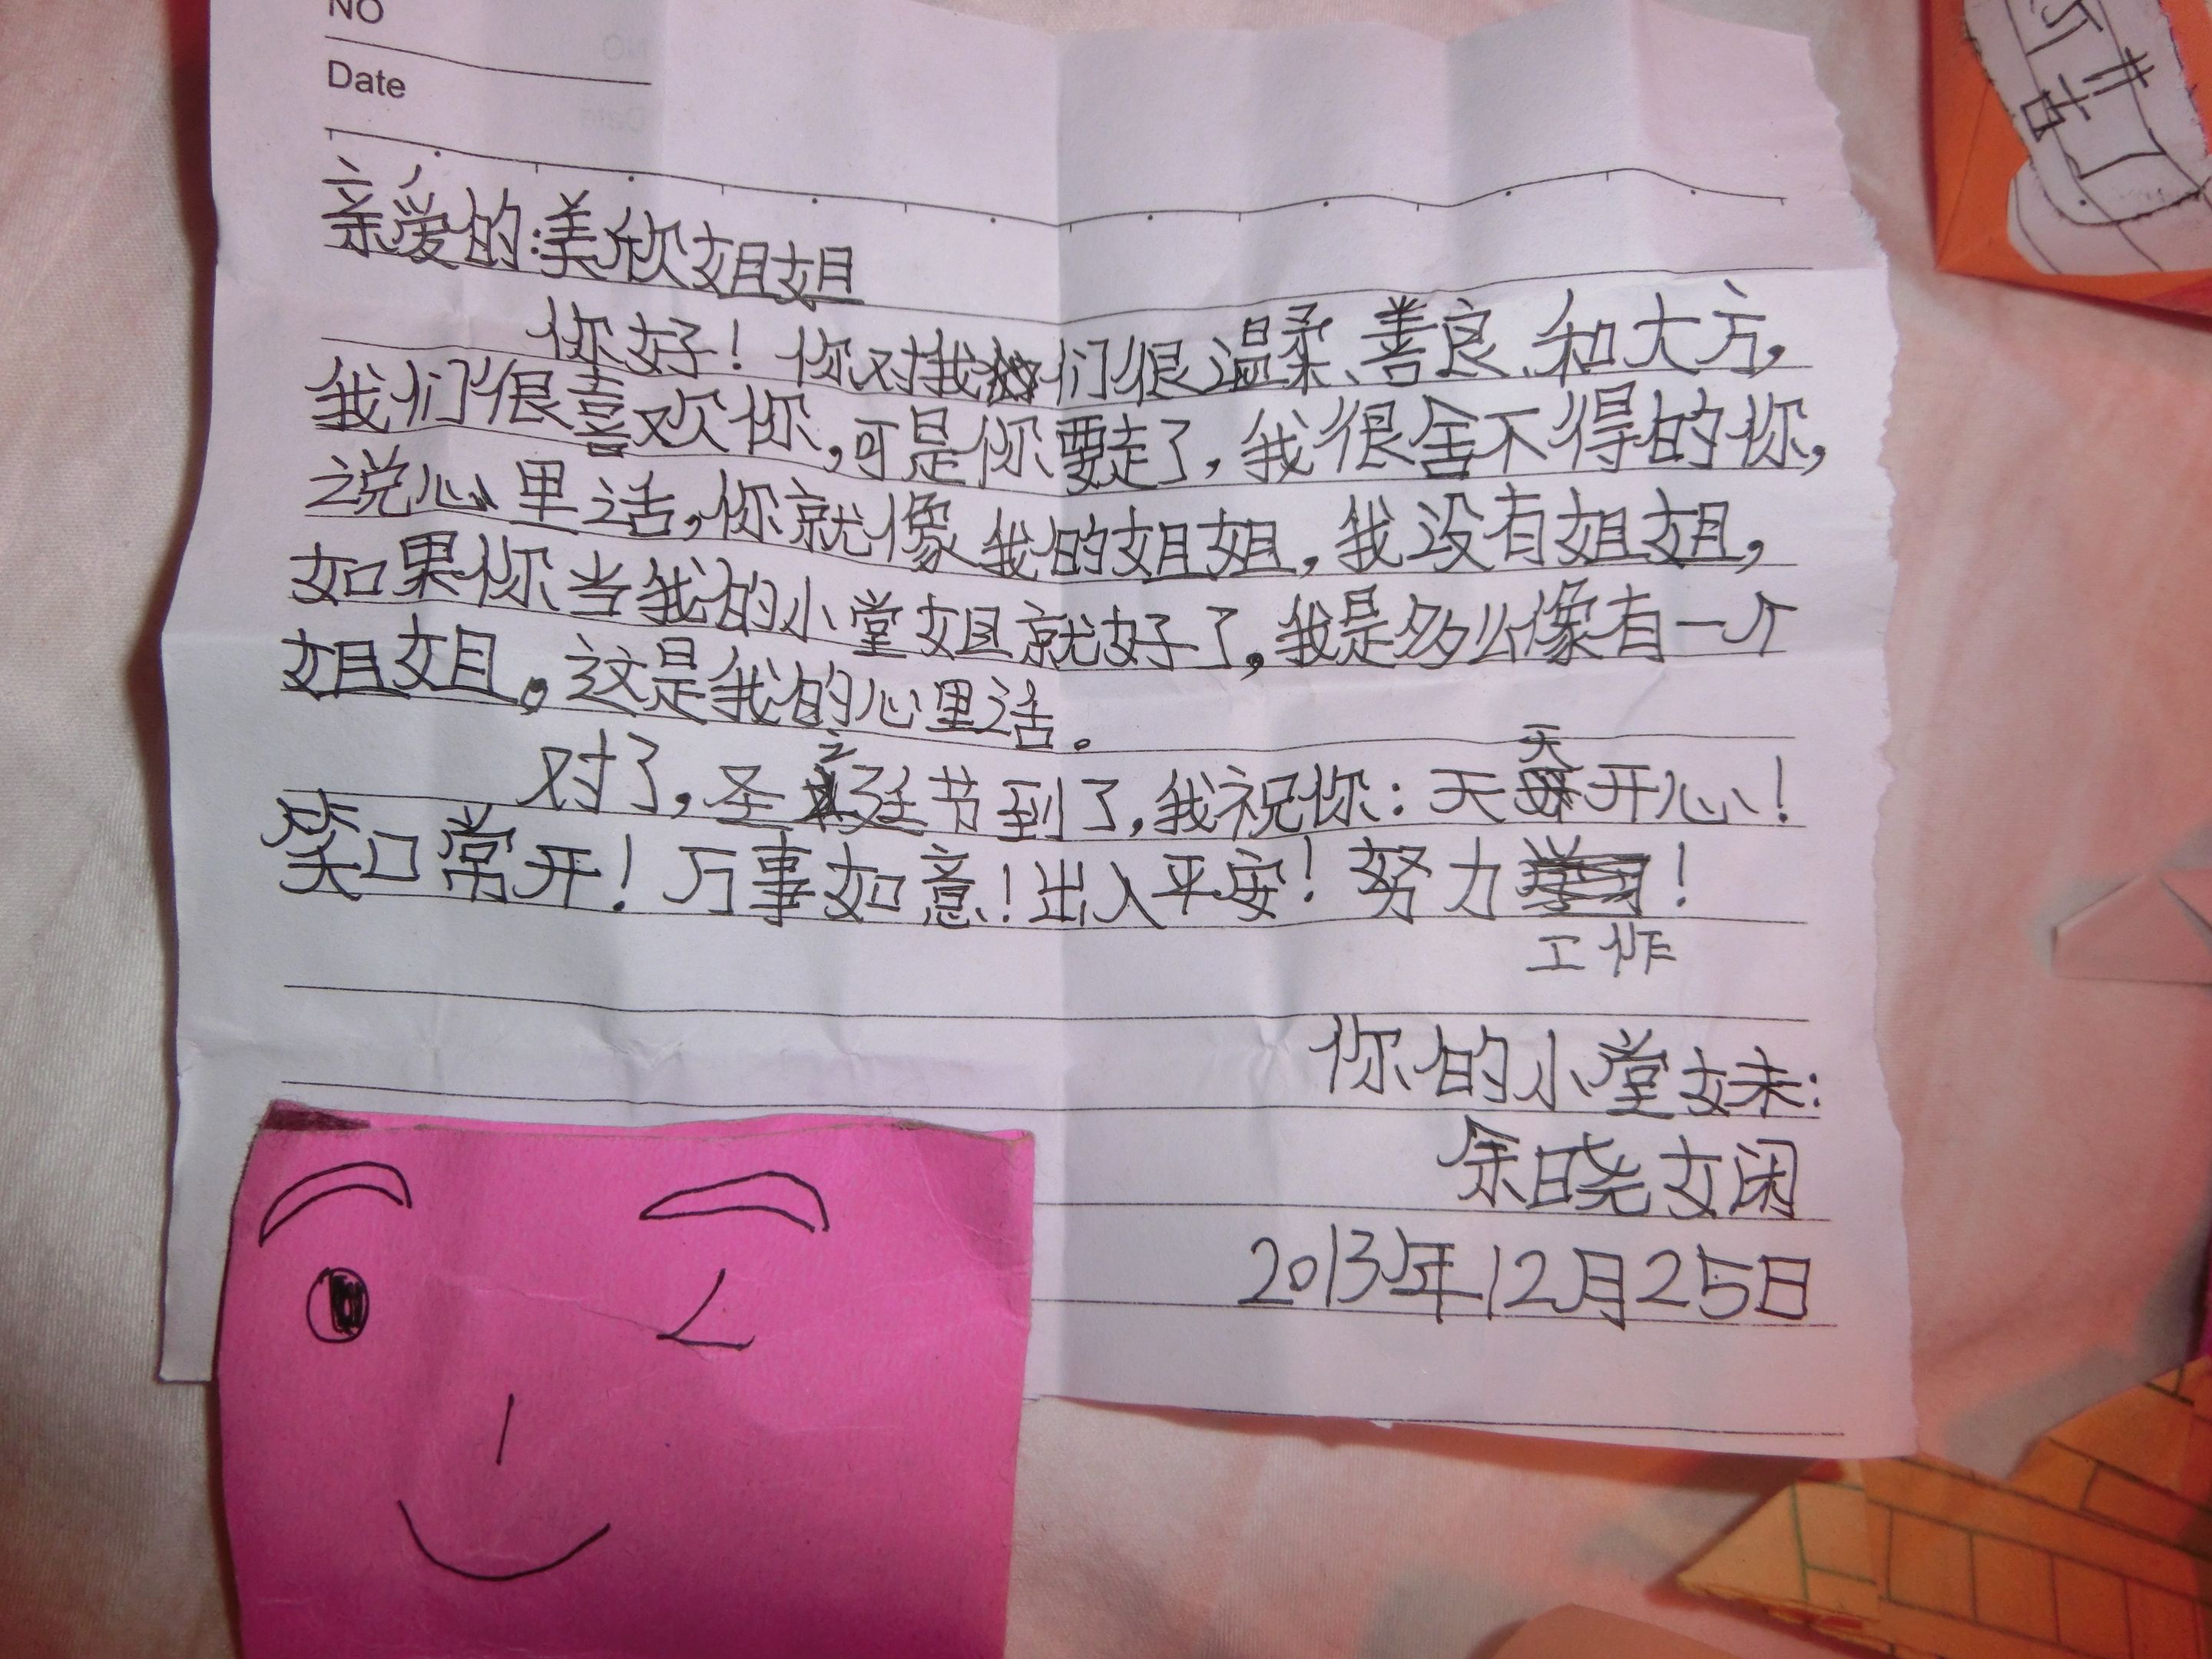 NO
Date
亲爱的:美欣姐姐
你好！你对我们很温柔、善良、和大方，
我们很喜欢你，可是你要走了，我很舍不得的你，
说心里话，你就像我的姐姐，我没有姐姐，
如果你当我的小堂姐就好了，我是多么像有一个
姐姐。这是我的心里话。
对了，圣诞节到了，我祝你：天天开心！
笑口常开！万事如意！出入平安！努力工作！
你的小堂妹：
余晓娴
2013年12月25日